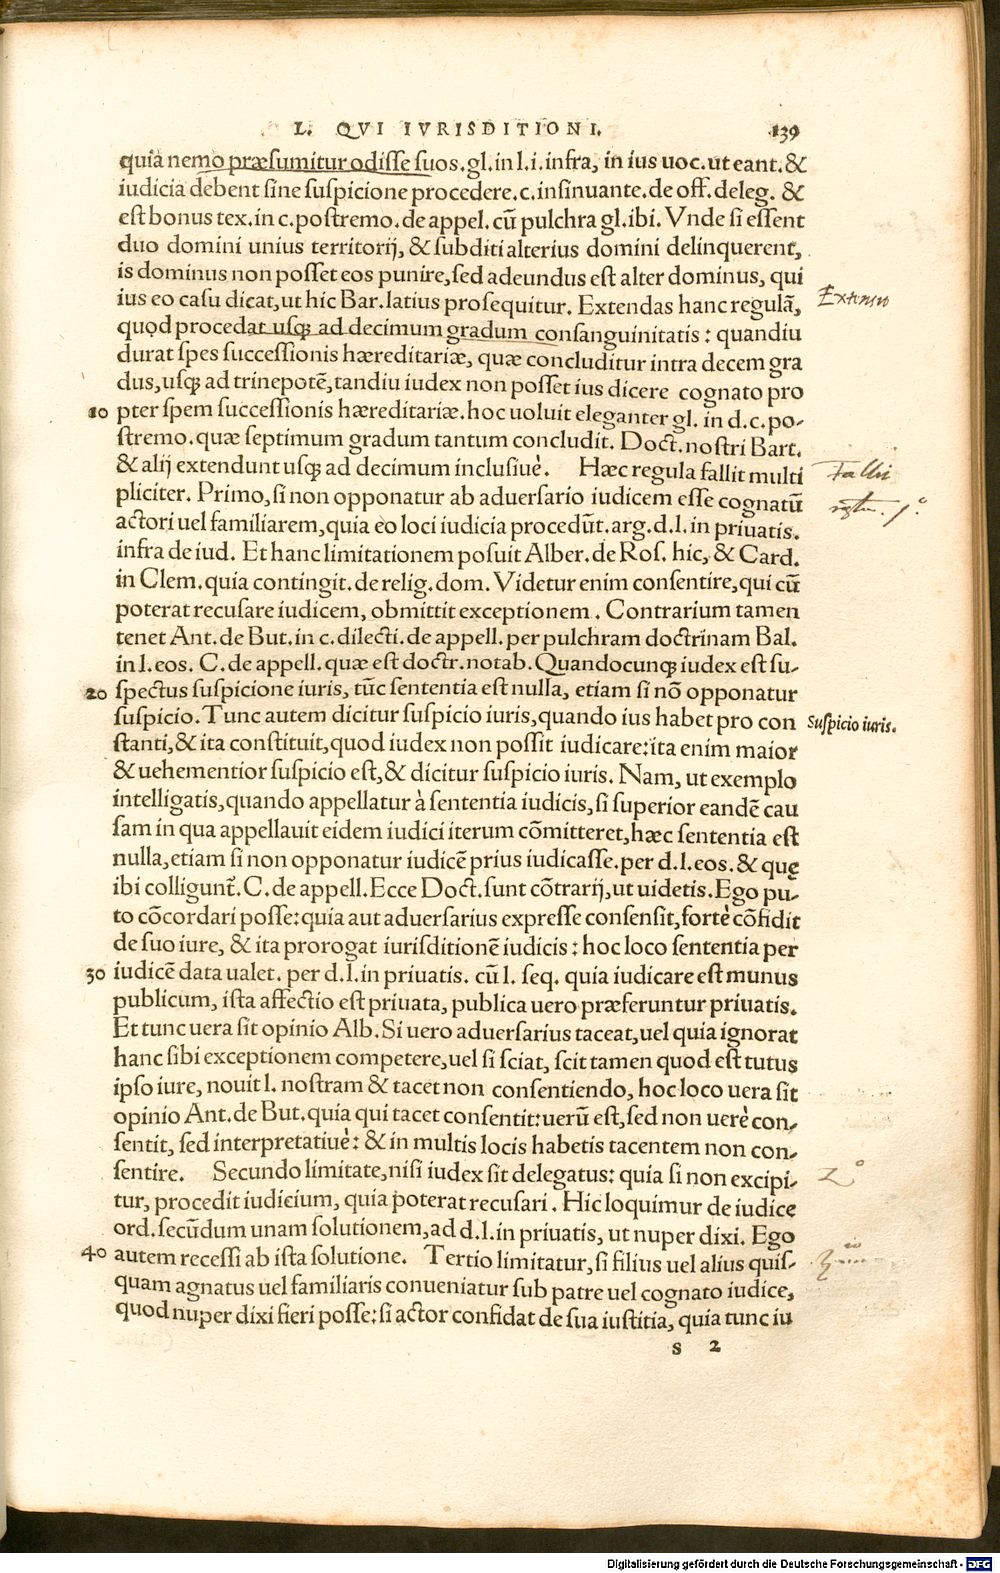 L. QVI IVRISDITIONI. 139
quia nemo præsumitur odisse suos. gl. in l. i. infra, in ius uoc. ut eant. &
iudicia debent sine suspicione procedere. c. insinuante. de off. deleg. &
est bonus tex. in c. postremo. de appel. cũ pulchra gl. ibi. Vnde si essent
duo domini unius territorij, & subditi alterius domini delinquerent,
is dominus non posset eos punire, sed adeundus est alter dominus, qui
ius eo casu dicat, ut hic Bar. latius prosequitur. Extendas hanc regulã,
Extensio
quod procedat usq; ad decimum gradum consanguinitatis: quandiu
durat spes successionis hæreditariæ, quæ concluditur intra decem gra
dus, usq; ad trinepotẽ, tandiu iudex non posset ius dicere cognato pro
10 pter spem successionis hæreditariæ. hoc uoluit eleganter gl. in d. c. po-
stremo. quæ septimum gradum tantum concludit. Doct. nostri Bart.
& alij extendunt usq; ad decimum inclusiuè. Hæc regula fallit multi
Fallit
pliciter. Primo, si non opponatur ab aduersario iudicem esse cognatũ
1º.
actori uel familiarem, quia eo loci iudicia procedũt. arg. d. l. in priuatis.
infra de iud. Et hanc limitationem posuit Alber. de Ros. hic, & Card.
in Clem. quia contingit. de relig. dom. Videtur enim consentire, qui cũ
poterat recusare iudicem, obmittit exceptionem. Contrarium tamen
tenet Ant. de But. in c. dilecti. de appell. per pulchram doctrinam Bal.
in l. eos. C. de appell. quæ est doctr. notab. Quandocunq; iudex est su-
20 spectus suspicione iuris, tũc sententia est nulla, etiam si nõ opponatur
suspicio. Tunc autem dicitur suspicio iuris, quando ius habet pro con
Suspicio iuris.
stanti, & ita constituit, quod iudex non possit iudicare: ita enim maior
& uehementior suspicio est, & dicitur suspicio iuris. Nam, ut exemplo
intelligatis, quando appellatur à sententia iudicis, si superior eandẽ cau
sam in qua appellauit eidem iudici iterum cõmitteret, hæc sententia est
nulla, etiam si non opponatur iudicẽ prius iudicasse. per d. l. eos. & quę
ibi colligunt̃. C. de appell. Ecce Doct. sunt cõtrarij, ut uidetis. Ego pu-
to cõcordari posse: quia aut aduersarius expresse consensit, fortè cõfidit
de suo iure, & ita prorogat iurisditionẽ iudicis: hoc loco sententia per
30 iudicẽ data ualet. per d. l. in priuatis. cũ l. seq. quia iudicare est munus
publicum, ista affectio est priuata, publica uero præferuntur priuatis.
Et tunc uera sit opinio Alb. Si uero aduersarius taceat, uel quia ignorat
hanc sibi exceptionem competere, uel si sciat, scit tamen quod est tutus
ipso iure, nouit l. nostram & tacet non consentiendo, hoc loco uera sit
opinio Ant. de But. quia qui tacet consentit: uerũ est, sed non uerè con-
sentit, sed interpretatiuè: & in multis locis habetis tacentem non con-
sentire. Secundo limitate, nisi iudex sit delegatus: quia si non excipi-
2º
tur, procedit iudicium, quia poterat recusari. Hic loquimur de iudice
ord. secũdum unam solutionem, ad d. l. in priuatis, ut nuper dixi. Ego
40 autem recessi ab ista solutione. Tertio limitatur, si filius uel alius quis-
quam agnatus uel familiaris conueniatur sub patre uel cognato iudice,
quod nuper dixi fieri posse: si actor confidat de sua iustitia, quia tunc iu
s 2
Digitalisierung gefördert durch die Deutsche Forschungsgemeinschaft - DFG